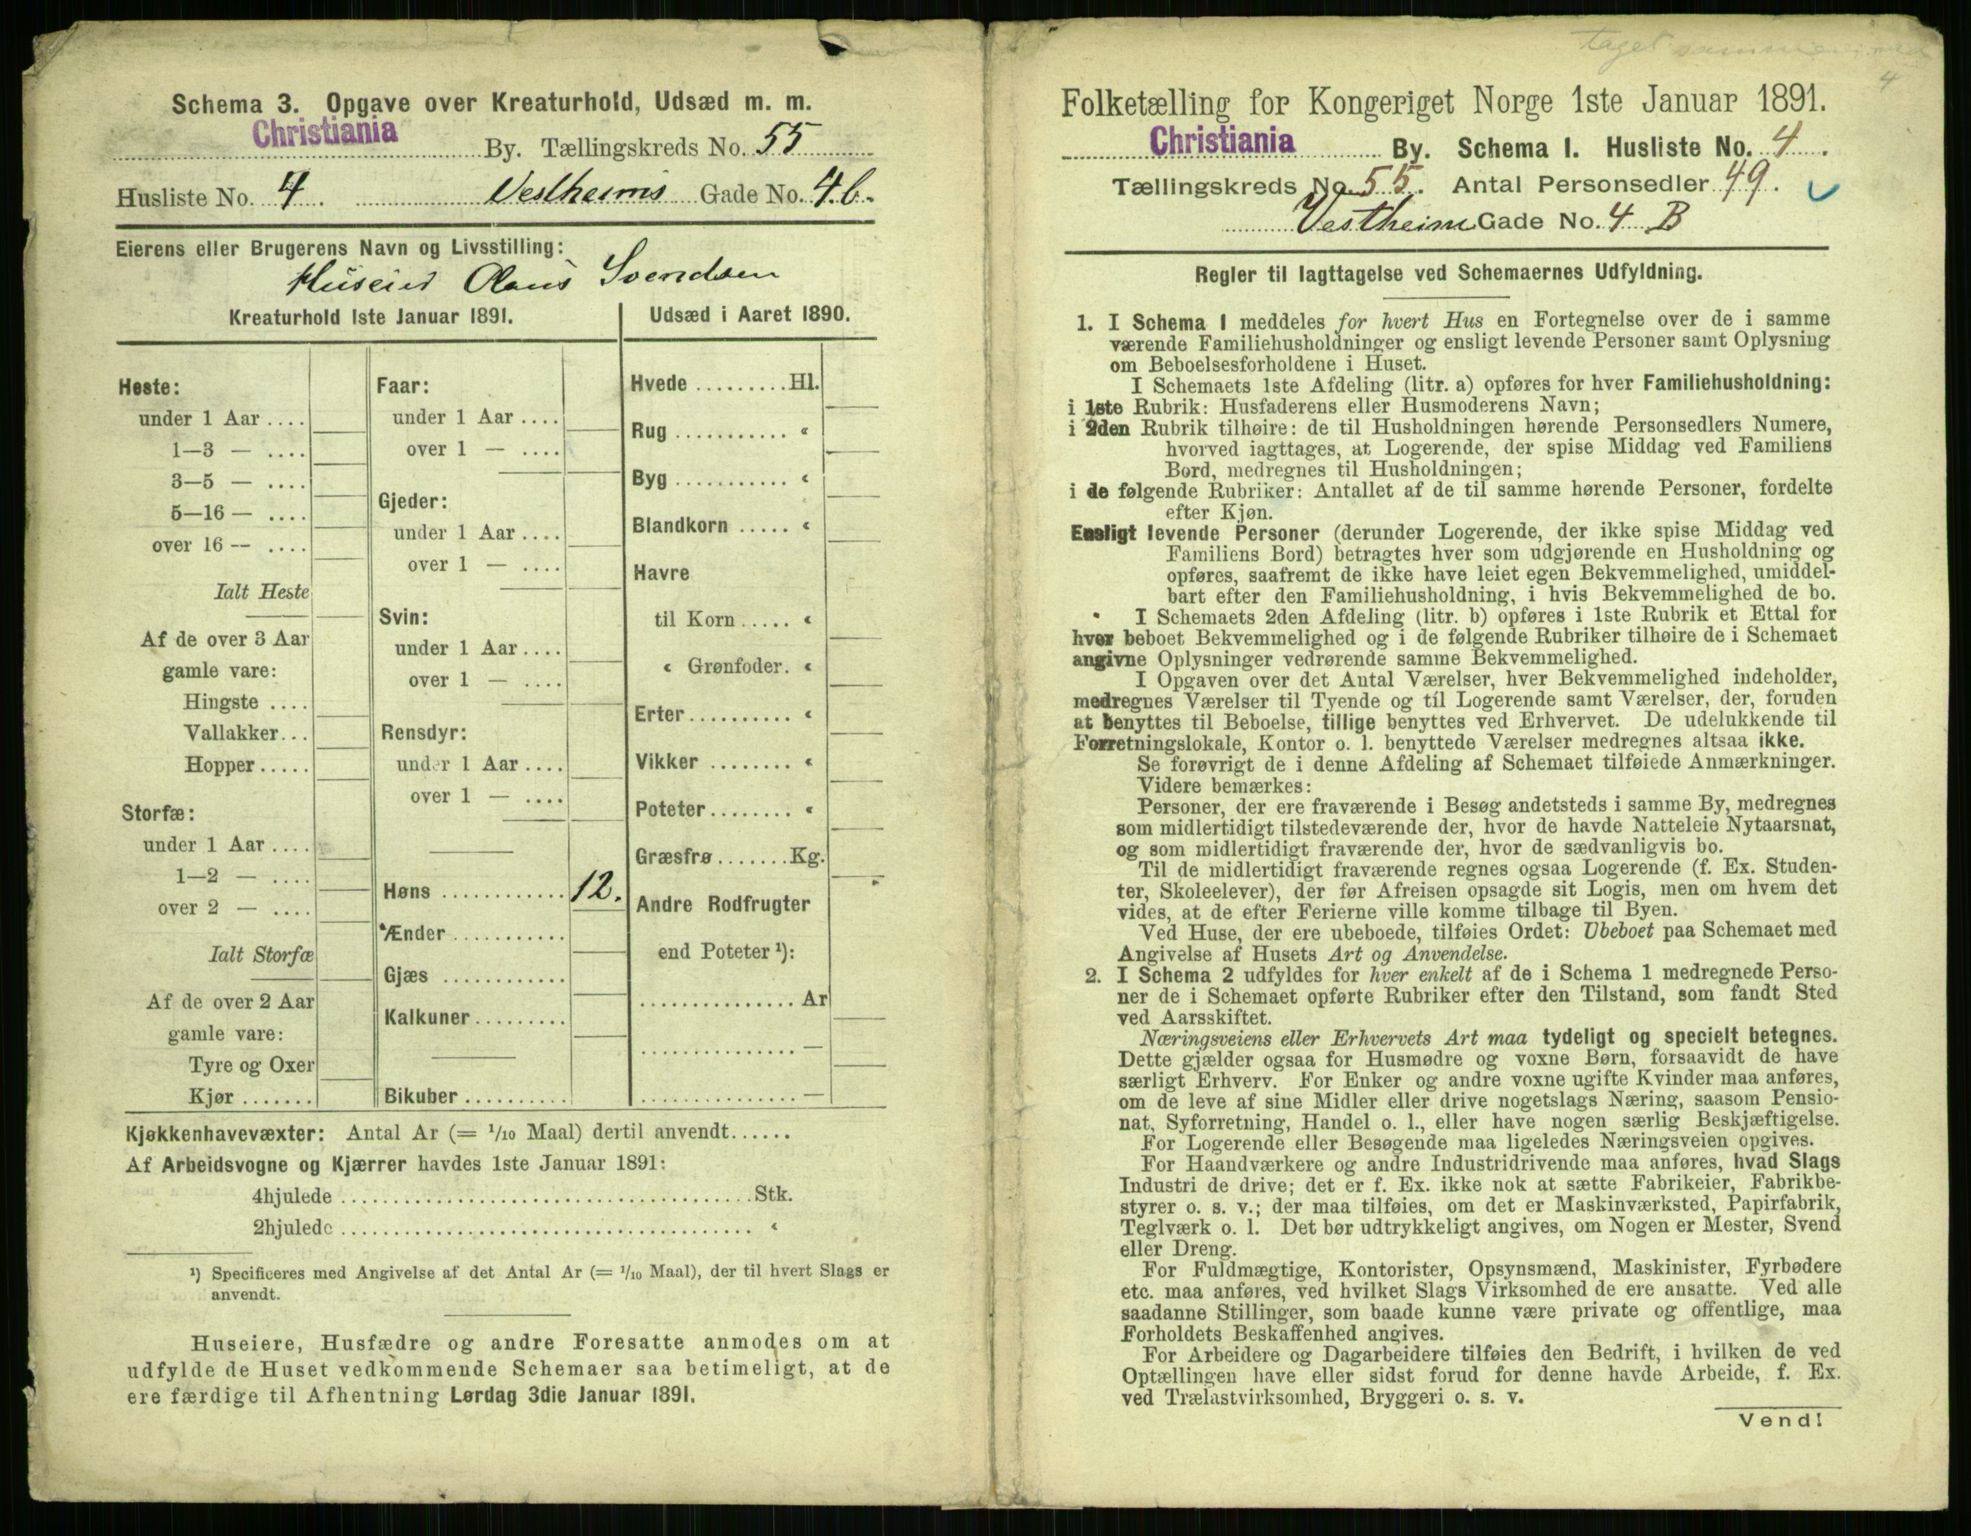 Schema 3. Opgave over Kreaturhold, Udsæd m. m.
Christiania By. Tællingskreds No. 55
Husliste No. 4. Vestheims Gade No. 4.b.
Eierens eller Brugerens Navn og Livsstilling:
Huseier Olaus Svendsen
Kreaturhold 1ste Januar 1891.
Heste:
under 1 Aar ....
1—3 — ....
3—5 — ....
5—16 — ....
over 16 — ....
Ialt Heste
Af de over 3 Aar
gamle vare:
Hingste ....
Vallakker...
Hopper.....
Storfæ:
under 1 Aar ....
1—2 — ....
over 2 — ....
Ialt Storfæ
Af de over 2 Aar
gamle vare:
Tyre og Oxer
Kjør .......
Faar:
under 1 Aar ....
over 1 — ....
Gjeder:
under 1 Aar ....
over 1 — ....
Svin:
under 1 Aar ....
over 1 — ....
Rensdyr:
under 1 Aar ....
over 1 — ....
Høns ............ 12.
Ænder...........
Gjæs ............
Kalkuner.........
Bikuber ..........
Udsæd i Aaret 1890.
Hvede .........Hl.
Rug ........... «
Byg ........... «
Blandkorn ..... «
Havre
til Korn ..... «
« Grønfoder. «
Erter.......... «
Vikker ........ «
Poteter........ «
Græsfrø .......Kg.
Andre Rodfrugter
end Poteter ¹):
...............Ar
............... —
............... —
Kjøkkenhavevæxter: Antal Ar (= 1/10 Maal) dertil anvendt......
Af Arbeidsvogne og Kjærrer havdes 1ste Januar 1891:
4hjulede ........................................Stk.
2hjulede ........................................ «
¹) Specificeres med Angivelse af det Antal Ar (= 1/10 Maal), der til hvert Slags er
anvendt.
Huseiere, Husfædre og andre Foresatte anmodes om at
udfylde de Huset vedkommende Schemaer saa betimeligt, at de
ere færdige til Afhentning Lørdag 3die Januar 1891.
taget sammen med
4
Folketælling for Kongeriget Norge 1ste Januar 1891.
Christiania By. Schema I. Husliste No. 4.
Tællingskreds No. 55. Antal Personsedler 49.
Vestheim Gade No. 4 B
Regler til Iagttagelse ved Schemaernes Udfyldning.
1. I Schema I meddeles for hvert Hus en Fortegnelse over de i samme
værende Familiehusholdninger og ensligt levende Personer samt Oplysning
om Beboelsesforholdene i Huset.
I Schemaets 1ste Afdeling (litr. a) opføres for hver Familiehusholdning:
i 1ste Rubrik: Husfaderens eller Husmoderens Navn;
i 2den Rubrik tilhøire: de til Husholdningen hørende Personsedlers Numere,
hvorved iagttages, at Logerende, der spise Middag ved Familiens
Bord, medregnes til Husholdningen;
i de følgende Rubriker: Antallet af de til samme hørende Personer, fordelte
efter Kjøn.
Ensligt levende Personer (derunder Logerende, der ikke spise Middag ved
Familiens Bord) betragtes hver som udgjørende en Husholdning og
opføres, saafremt de ikke have leiet egen Bekvemmelighed, umiddel-
bart efter den Familiehusholdning, i hvis Bekvemmelighed de bo.
I Schemaets 2den Afdeling (litr. b) opføres i 1ste Rubrik et Ettal for
hver beboet Bekvemmelighed og i de følgende Rubriker tilhøire de i Schemaet
angivne Oplysninger vedrørende samme Bekvemmelighed.
I Opgaven over det Antal Værelser, hver Bekvemmelighed indeholder,
medregnes Værelser til Tyende og til Logerende samt Værelser, der, foruden
at benyttes til Beboelse, tillige benyttes ved Erhvervet. De udelukkende til
Forretningslokale, Kontor o. l. benyttede Værelser medregnes altsaa ikke.
Se forøvrigt de i denne Afdeling af Schemaet tilføiede Anmærkninger.
Videre bemærkes:
Personer, der ere fraværende i Besøg andetsteds i samme By, medregnes
som midlertidigt tilstedeværende der, hvor de havde Natteleie Nytaarsnat,
og som midlertidigt fraværende der, hvor de sædvanligvis bo.
Til de midlertidigt fraværende regnes ogsaa Logerende (f. Ex. Studen-
ter, Skoleelever), der før Afreisen opsagde sit Logis, men om hvem det
vides, at de efter Ferierne ville komme tilbage til Byen.
Ved Huse, der ere ubeboede, tilføies Ordet: Ubeboet paa Schemaet med
Angivelse af Husets Art og Anvendelse.
2. I Schema 2 udfyldes for hver enkelt af de i Schema 1 medregnede Perso-
ner de i Schemaet opførte Rubriker efter den Tilstand, som fandt Sted
ved Aarsskiftet.
Næringsveiens eller Erhvervets Art maa tydeligt og specielt betegnes.
Dette gjælder ogsaa for Husmødre og voxne Børn, forsaavidt de have
særligt Erhverv. For Enker og andre voxne ugifte Kvinder maa anføres,
om de leve af sine Midler eller drive nogetslags Næring, saasom Pensio-
nat, Syforretning, Handel o. l., eller have nogen særlig Beskjæftigelse.
For Logerende eller Besøgende maa ligeledes Næringsveien opgives.
For Haandværkere og andre Industridrivende maa anføres, hvad Slags
Industri de drive; det er f. Ex. ikke nok at sætte Fabrikeier, Fabrikbe-
styrer o. s. v.; der maa tilføies, om det er Maskinværksted, Papirfabrik,
Teglværk o. l. Det bør udtrykkeligt angives, om Nogen er Mester, Svend
eller Dreng.
For Fuldmægtige, Kontorister, Opsynsmænd, Maskinister, Fyrbødere
etc. maa anføres, ved hvilket Slags Virksomhed de ere ansatte. Ved alle
saadanne Stillinger, som baade kunne være private og offentlige, maa
Forholdets Beskaffenhed angives.
For Arbeidere og Dagarbeidere tilføies den Bedrift, i hvilken de ved
Optællingen have eller sidst forud for denne havde Arbeide, f. Ex.
ved Trælastvirksomhed, Bryggeri o. s. v.
Vend!